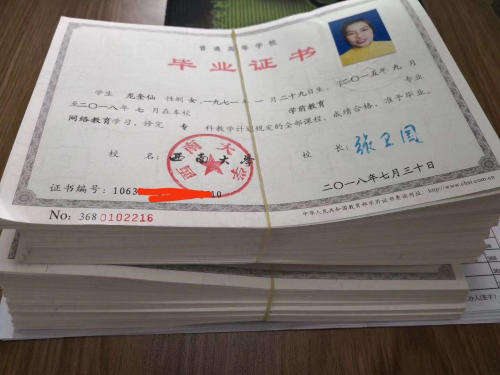 普通高等学校
毕业证书
学生 龙奎仙 性别 女,一九七一年 一 月二十九日生,于二〇一五年 九 月
至二〇一八年 七 月在本校 学前教育 专业
网络教育学习,修完 专 科教学计划规定的全部课程,成绩合格,准予毕业。
校 名: 西南大学 校 长: 张卫国
西南大学
证书编号:1063 10
二〇一八年七月三十日
No: 3680102216
中华人民共和国教育部学历证书查询网址:http://www.chsi.com.cn